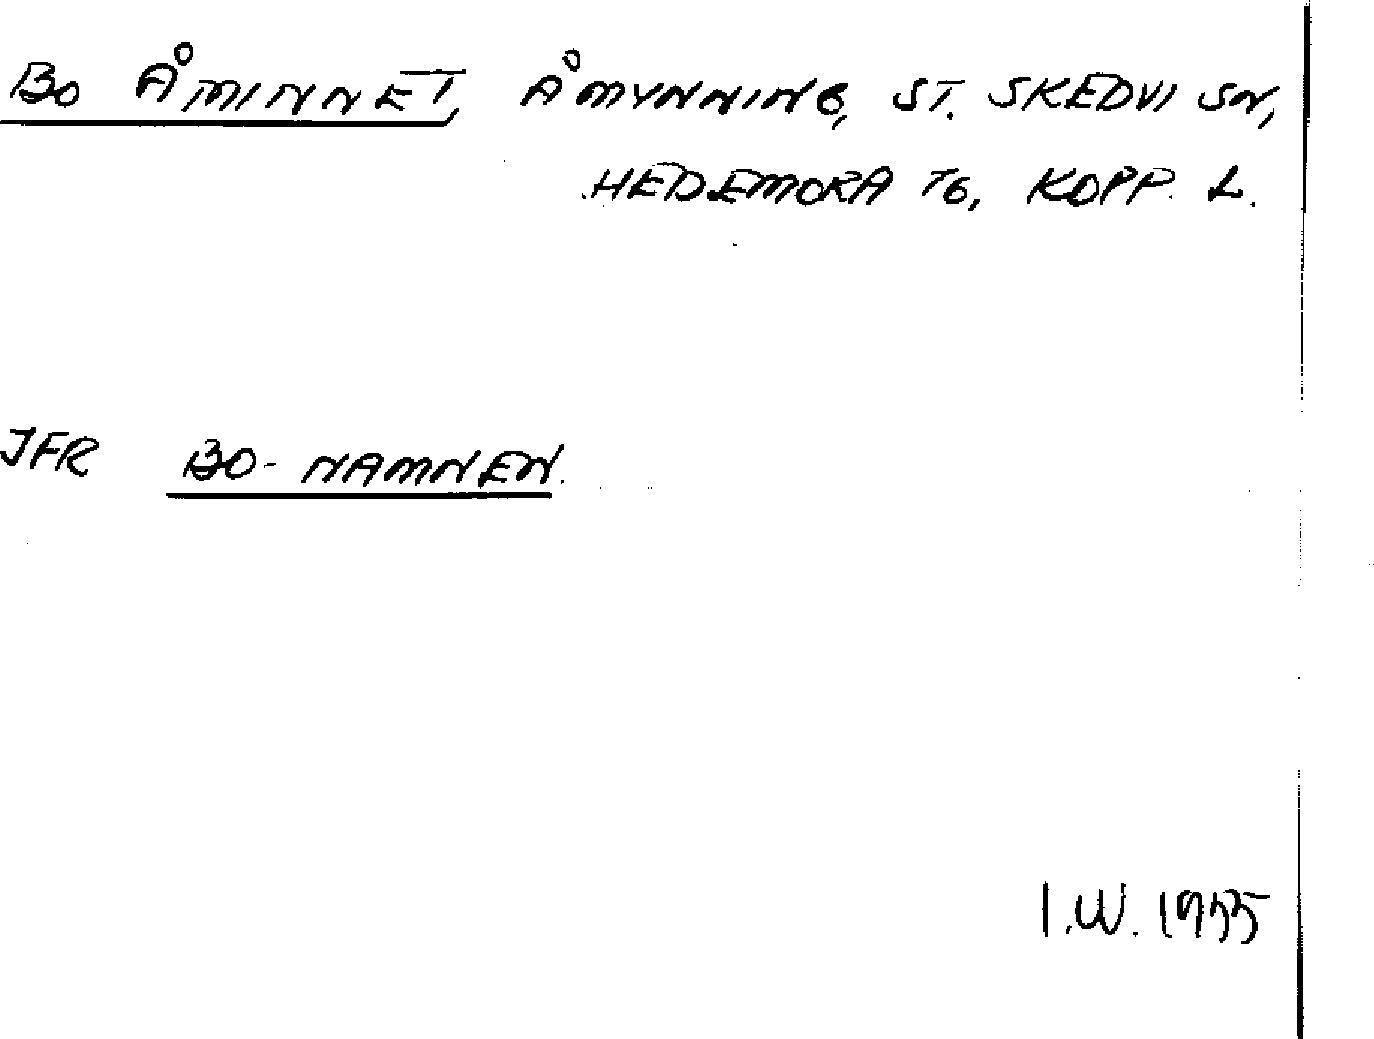 BO ÅMINNET, ÅMYNNING, ST. SKEDVI SN,
HEDEMORA TG, KOPP. L.
JFR BO-NAMNEN.
I.W. 1955